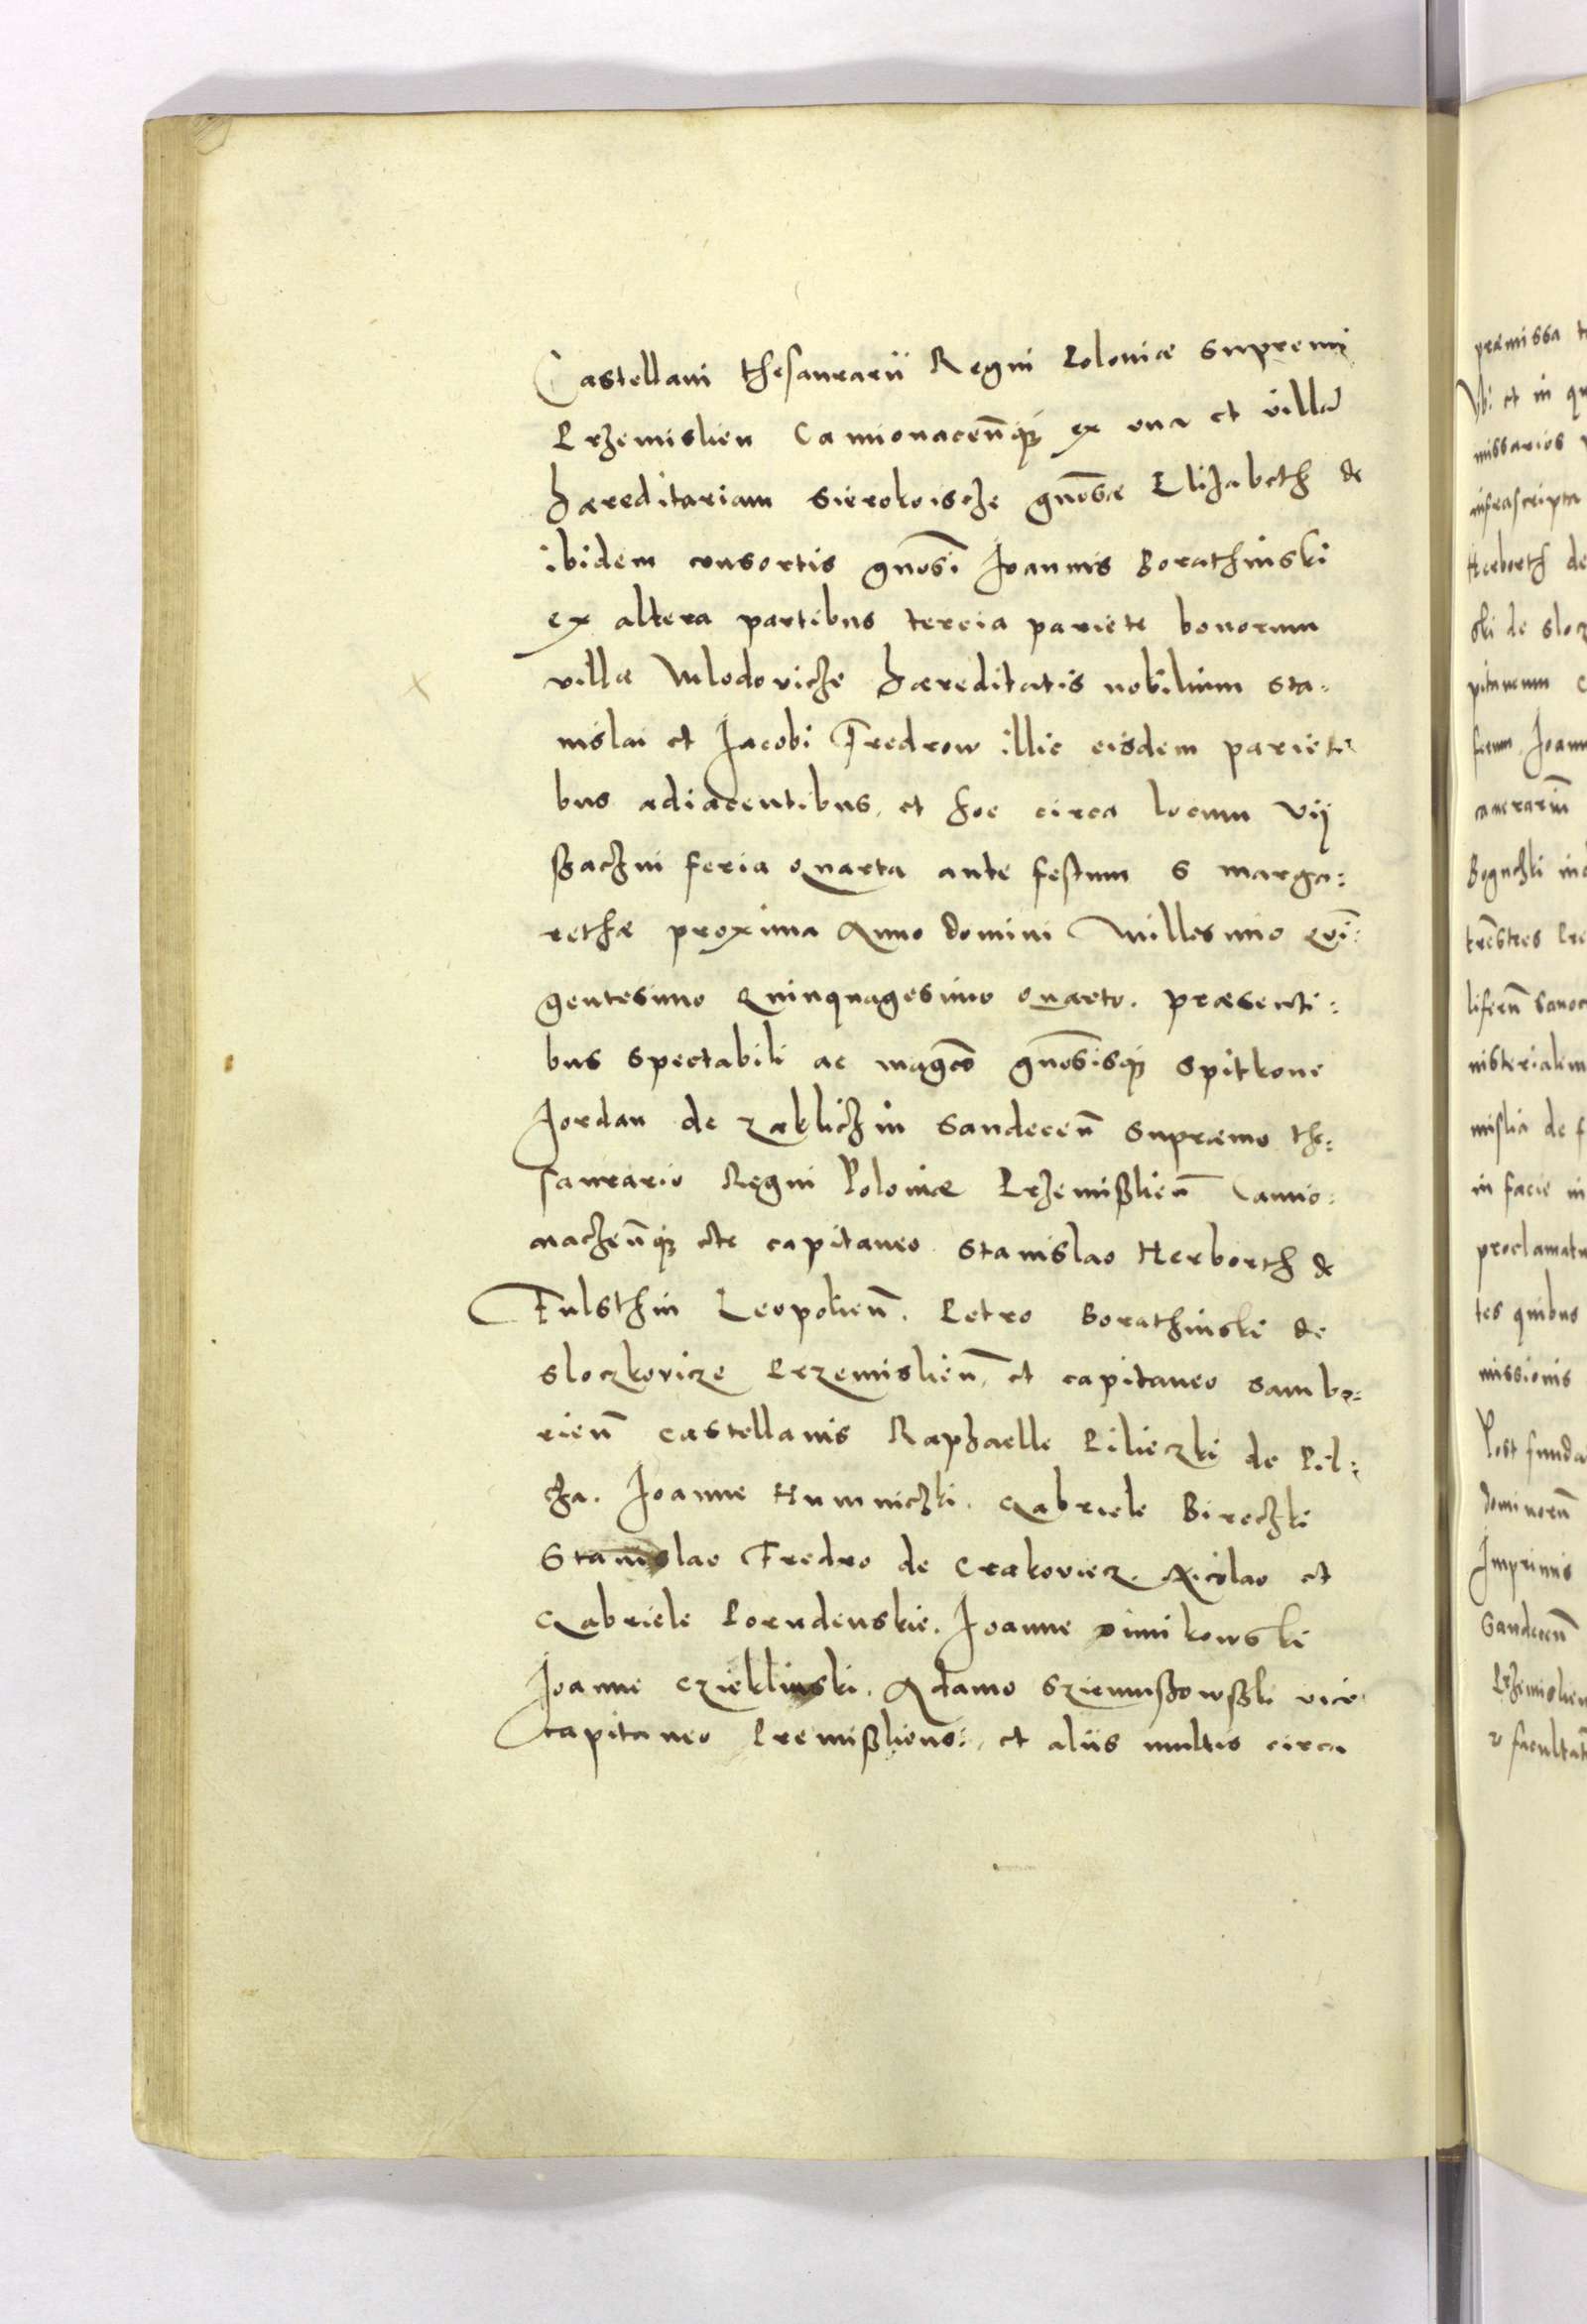 Castellani thesaurarii Regni Poloniæ supremi
Przemislien Camionacen̄q; ex una et villā
hæreditariam Sierokoische gnōsæ Elizabeth de
ibidem consortis gnōsi Joannis Borathinski
ex altera partibus tercia pariete bonorum
villæ Mlodoviche hæreditatis nobilium Sta:
nislai et Jacobi Fredrow illic eisdem pariete
bus adiacentibus, et hoc circa locum Vij
szachni feria quarta ante festum S Marga:
rethæ proxima Anno domini Millesimo Qvī:
gentesimo Quinquagesimo quarto. præsenti:
bus spectabili ac magcō gnōsisq; Spitkone
Jordan de Zaklichin Sandecen̄ Supræmo the:
saurario Regni Poloniæ Przemißlien̄ Camio:
nachen̄q; etc capitaneo Stanislao Herborth de
Fulsthin Leopolien̄. Petro Borathinski de
Sloczkovicze Przemislien̄, et capitaneo Sambo:
rien̄ castellanis Raphaelle Pilieczki de Pil:
cha. Joanne Humnichki. Gabriele Birechki
Stanislao Fredro de Crakoviecz. Nicolao et
Gabriele Porudenskie. Joanne Dimikowski
Joanne Czieklinski. Adamo Sziemußowsski vice
capitaneo Premißliens:, et aliis multis circa
præmissa
Vbi et in
missarios
infrascripta
Herborth de
ski de
pitaneum
Joann
Boguchki
Sanoc
nisterialem
mislia de
in facie in
tes quibus
missionis
Post funda
dominorū
Imprimis
Sandecen̄
Przemislien